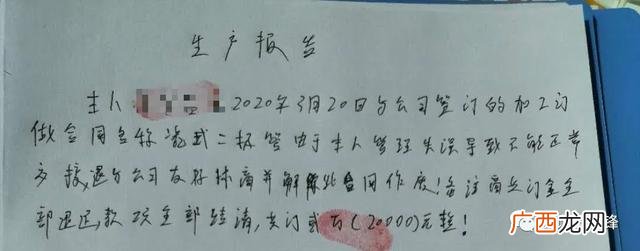 生产报告
本人 2020年3月20日与公司签订的加工订
做合同名称 式二极管由于本人管理失误导致不能正常
接,退与公司友好 商并解除此合同作废!备注 订金全
部退还,款项全部结清,共订贰万(20000)元整!
广西龙网
锋